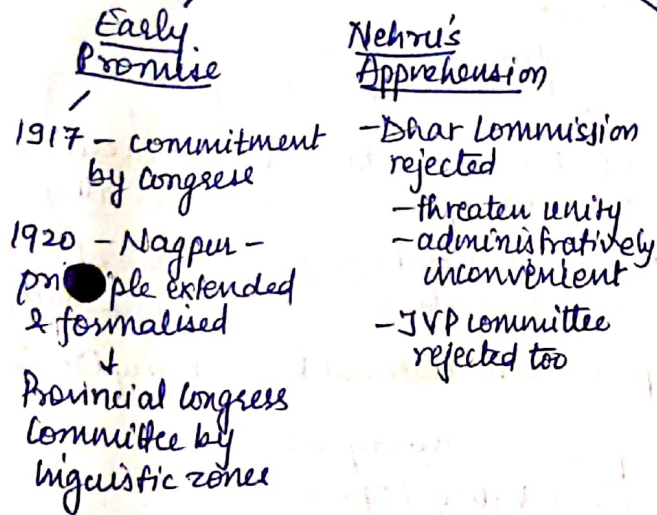 Early
Promise
1917 - commitment
by Congress
1920 - Nagpur -
extended
& formalised
Provincial Congress
Committee by
linguistic zones
Nehru's
Apprehension
- Dhar Commission
rejected
- threaten unity
- administratively
inconvenient
- JVP committee
rejected too